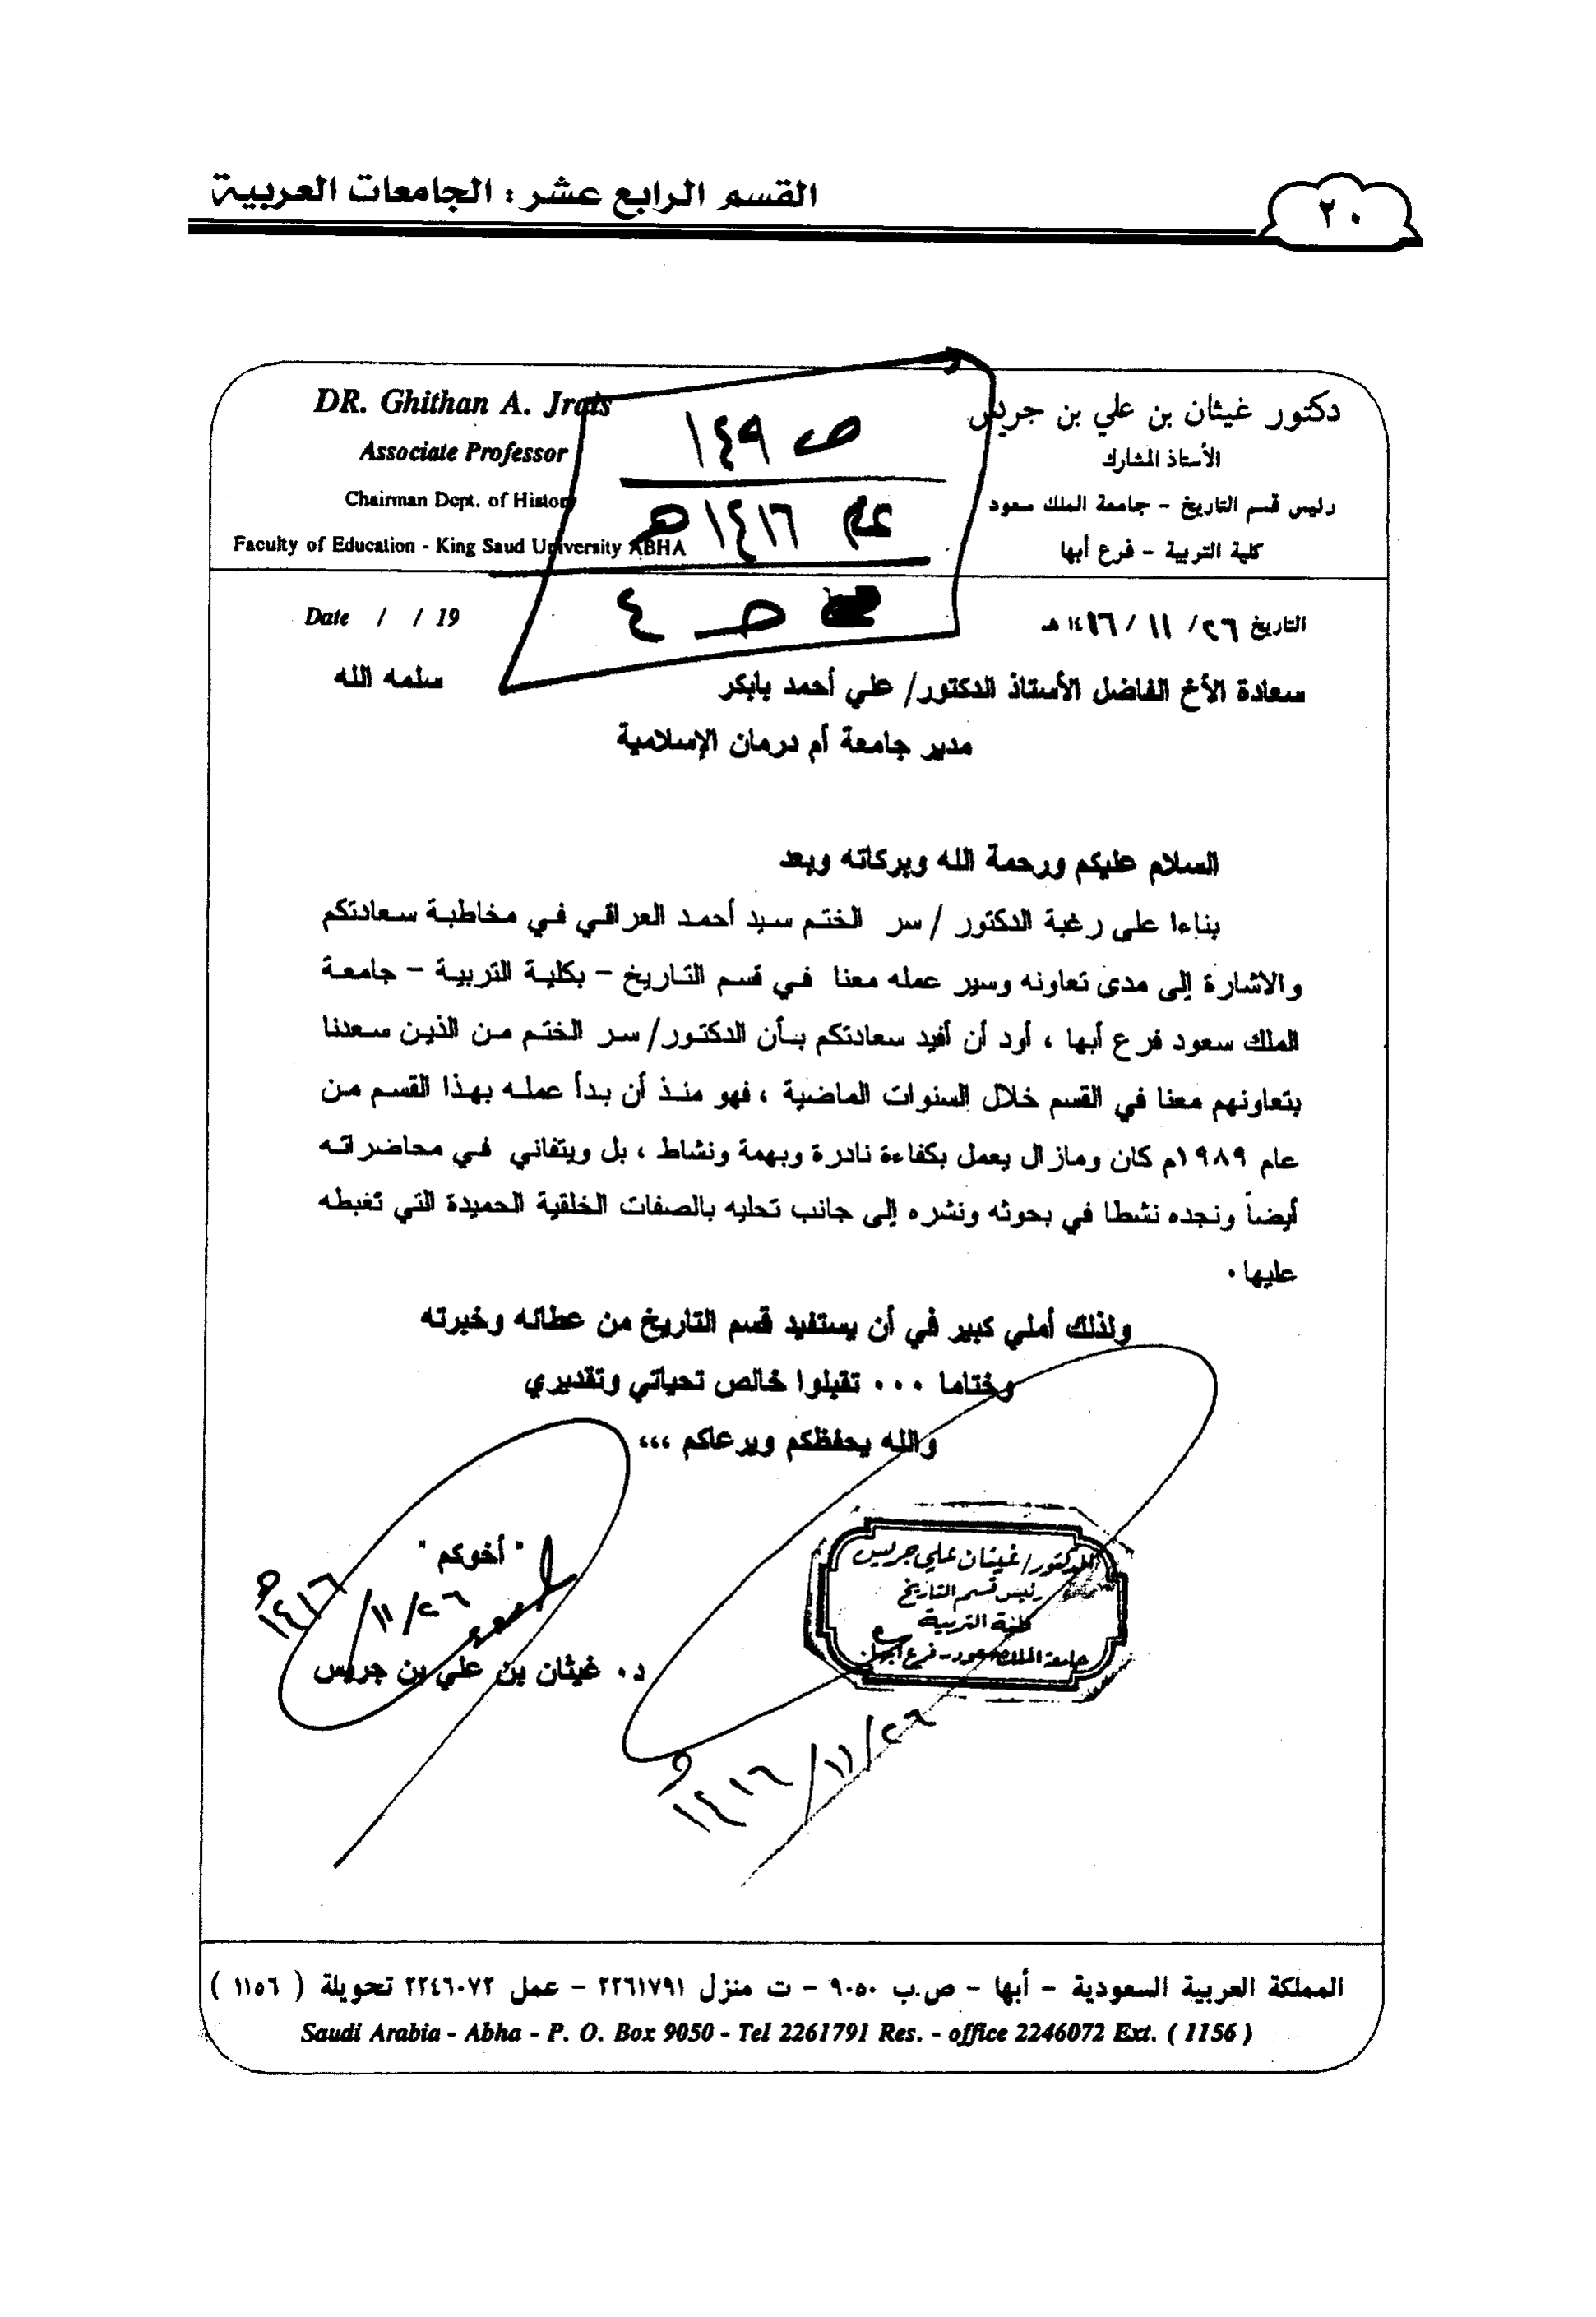 القسم الرابع عشر : الجامعات العربية
٢٠
DR. Ghithan A. Jrais
Associate Professor
Chairman Dept. of History
Faculty of Education - King Saud University ABHA
دكتور غيثان بن علي بن جريس
الأستاذ المشارك
رئيس قسم التاريخ - جامعة الملك سعود
كلية التربية - فرع أبها
ص ١٤٩
عام ١٤١٦ هـ
ح - ٤
Date / / 19
التاريخ ٢٦/ ١١ / ١٤١٦ هـ
سعادة الأخ الفاضل الأستاذ الدكتور/ علي أحمد بابكر سلمه الله
مدير جامعة أم درمان الإسلامية
السلام عليكم ورحمة الله وبركاته وبعد
بناءا على رغبة الدكتور / سر الختم سيد أحمد العراقي في مخاطبة سعادتكم
والاشارة إلى مدى تعاونه وسير عمله معنا في قسم التاريخ - بكلية التربية - جامعة
الملك سعود فرع أبها ، أود أن أفيد سعادتكم بأن الدكتور/ سر الختم من الذين سعدنا
بتعاونهم معنا في القسم خلال السنوات الماضية ، فهو منذ أن بدأ عمله بهذا القسم من
عام ١٩٨٩م كان ومازال يعمل بكفاءة نادرة وبهمة ونشاط ، بل ويتفاني في محاضراته
أيضاً ونجده نشطا في بحوثه ونشره إلى جانب تحليه بالصفات الخلقية الحميدة التي تغبطه
عليها .
ولذلك أملي كبير في أن يستفيد قسم التاريخ من عطائه وخبرته
وختاما ... تقبلوا خالص تحياتي وتقديري
والله يحفظكم ويرعاكم ،،،
" أخوكم "
٢٦/ ١١/ ١٤١٦ هـ
د. غيثان بن علي بن جريس
الدكتور/ غيثان علي جريس
رئيس قسم التاريخ
كلية التربية
جامعة الملك سعود - فرع أبها
٢٦/ ١١/ ١٤١٦ هـ
المملكة العربية السعودية - أبها - ص.ب ٩٠٥٠ - ت منزل ٢٢٦١٧٩١ - عمل ٢٢٤٦٠٧٢ تحويلة ( ١١٥٦ )
Saudi Arabia - Abha - P. O. Box 9050 - Tel 2261791 Res. - office 2246072 Ext. ( 1156 )